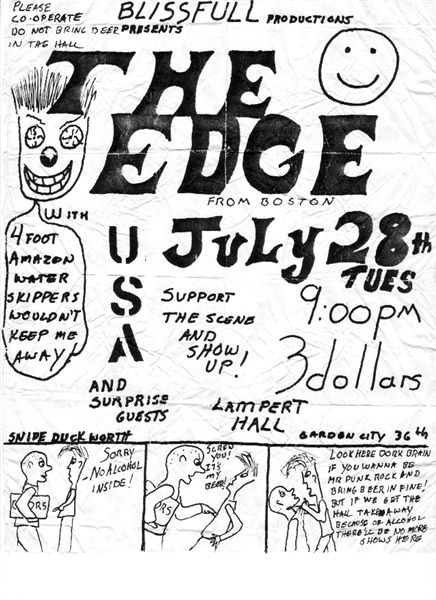 PLEASE
CO-OPERATE
DO NOT BRING BEER
IN THE HALL
BLISSFULL PRODUCTIONS
PRESENTS
THE
EDGE
FROM BOSTON
JULY 28th
TUES
9:00pm
3 dollars
WITH
4 FOOT
AMAZON
WATER
SKIPPERS
WOULDN'T
KEEP ME
AWAY!
USA
SUPPORT
THE SCENE
AND
SHOW
UP!
AND
SURPRISE
GUESTS
LAMPERT
HALL
GARDEN CITY 36th
SNIDE DUCKWORTH
SORRY
NO ALCOHOL
INSIDE!
DRS
SCREW
YOU!
IT'S
MY
BEER!
DRS
LOOK HERE DORK BRAIN
IF YOU WANNA BE
MR PUNK ROCK AND
BRING BEER IN FINE!
BUT IF WE GET THE
HALL TAKEN AWAY
BECAUSE OF ALCOHOL
THERE'LL BE NO MORE
SHOWS HERE